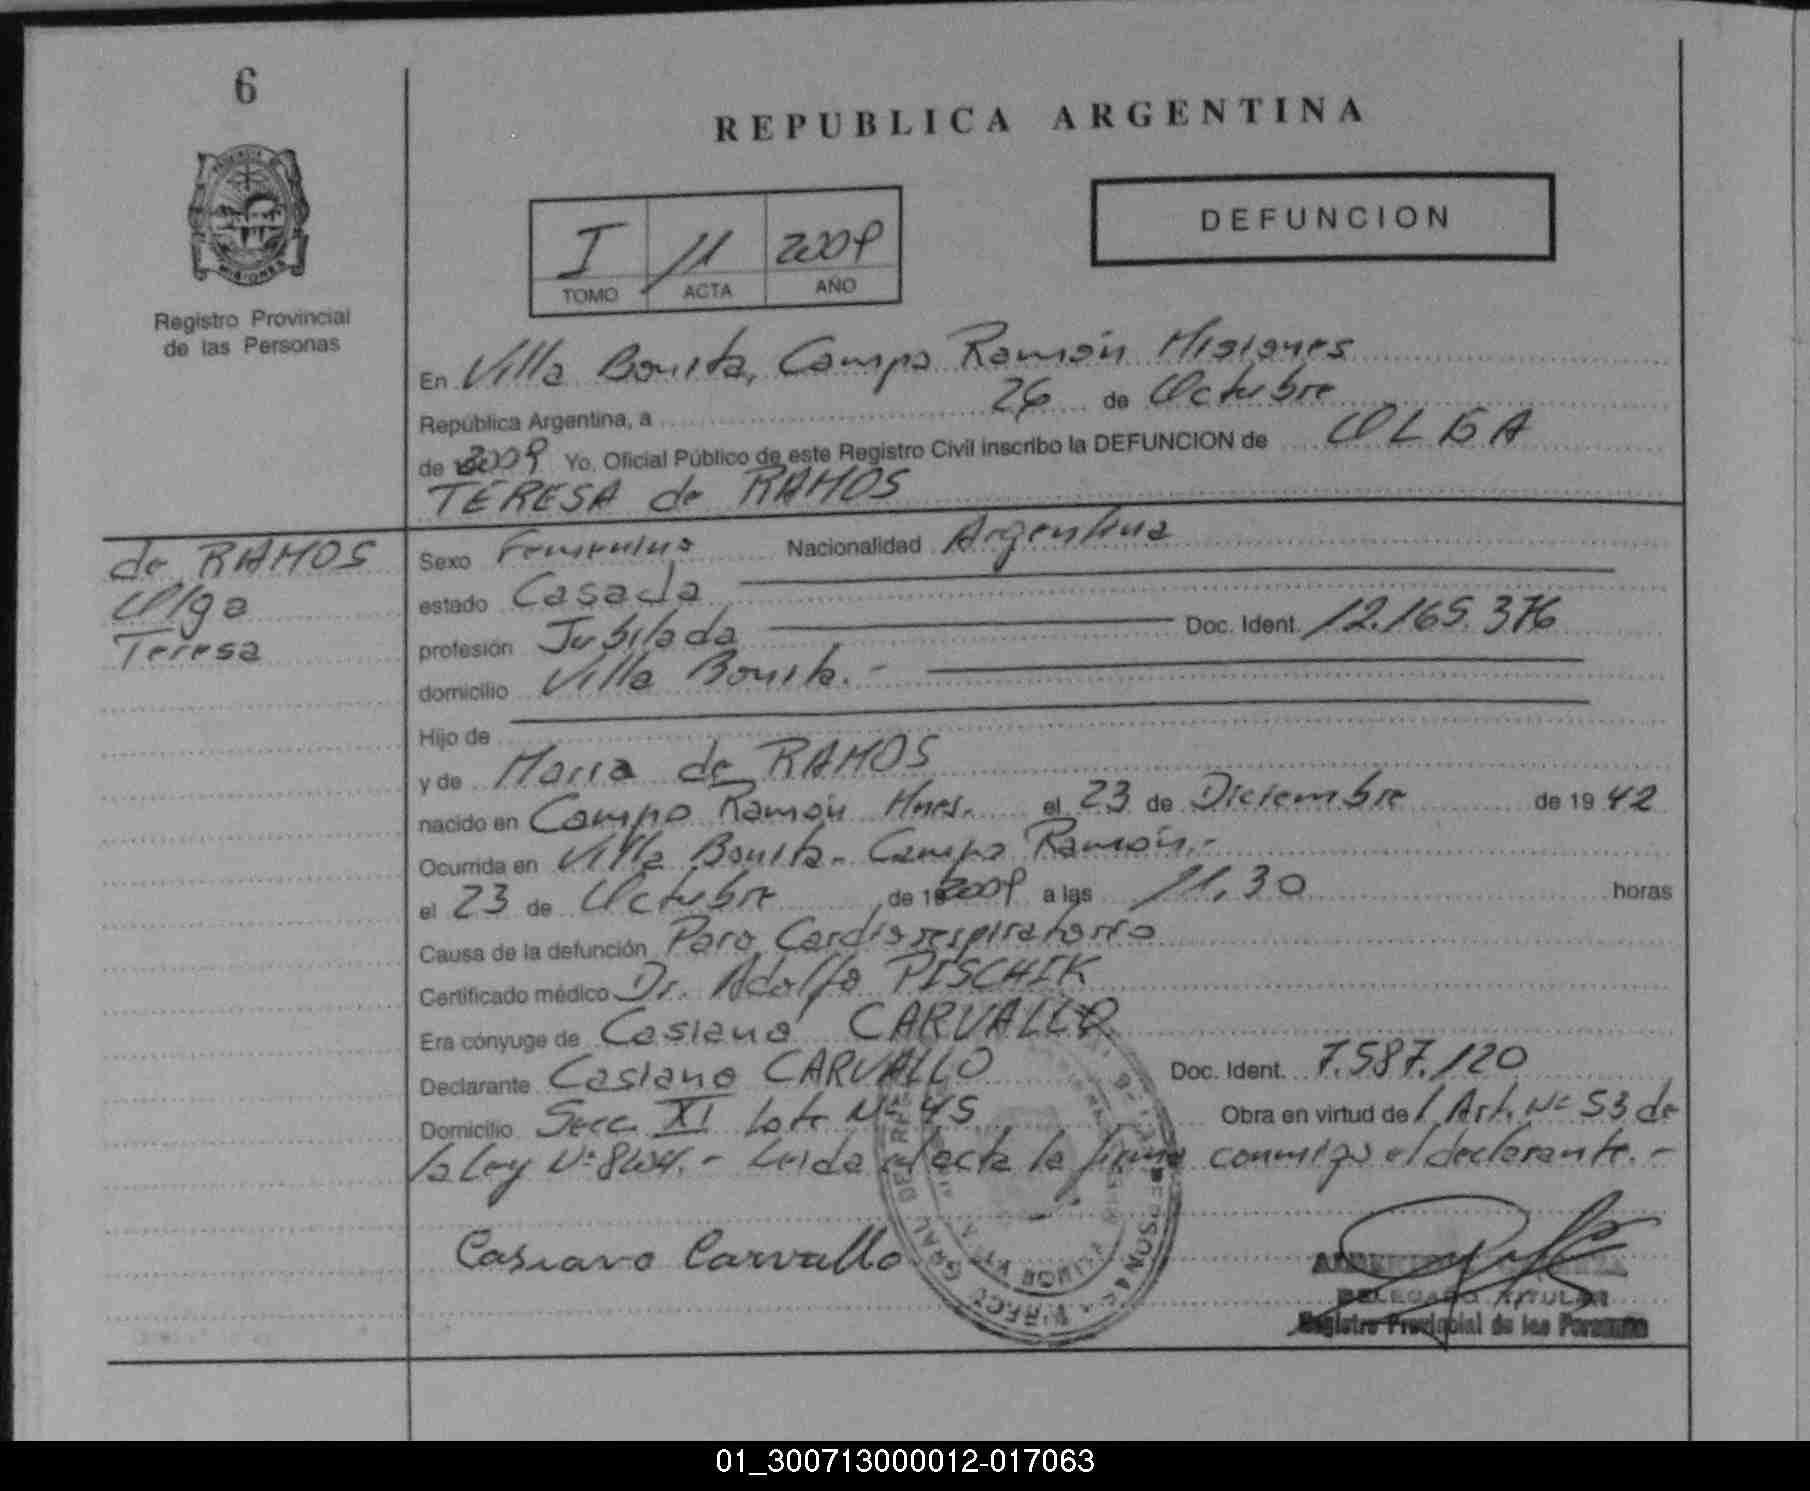 6
REPUBLICA ARGENTINA
DEFUNCION
I 11 2009
TOMO ACTA AÑO
MISIONES
Registro Provincial
de las Personas
En Villa Bonita, Campo Ramón Misiones
República Argentina, a 26 de Octubre
de 2009 Yo, Oficial Público de este Registro Civil inscribo la DEFUNCION de OLGA
TERESA de RAMOS
de RAMOS
Olga
Teresa
Sexo Femenino Nacionalidad Argentina
estado Casada
profesión Jubilada Doc. Ident. 12.165.376
domicilio Villa Bonita.-
Hijo de
y de Maria de RAMOS
nacido en Campo Ramón Mnes. el 23 de Diciembre de 19 42
Ocurrida en Villa Bonita - Campo Ramón.-
el 23 de Octubre de 2009 a las 11,30 horas
Causa de la defunción Paro Cardiorrespiratorio
Certificado médico Dr. Adolfo PISCHIK
Era cónyuge de Casiano CARVALLO
Declarante Casiano CARVALLO Doc. Ident. 7.587.120
Domicilio Secc. XI Lote Nº 45 Obra en virtud de l Art. Nº 53 de
la Ley Nº 8204.- Leida el acta la firma conmigo el declarante.-
Casiano Carvallo
DELEGADO TITULAR
Registro Provincial de las Personas
01_300713000012-017063